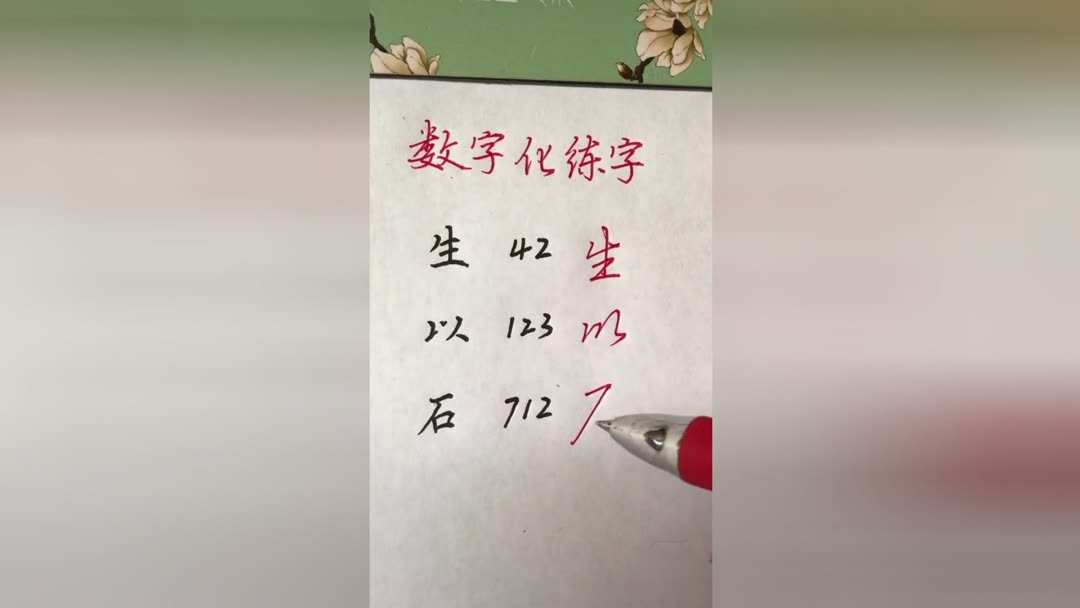 数字化练字
生 42 生
以 123 以
石 712